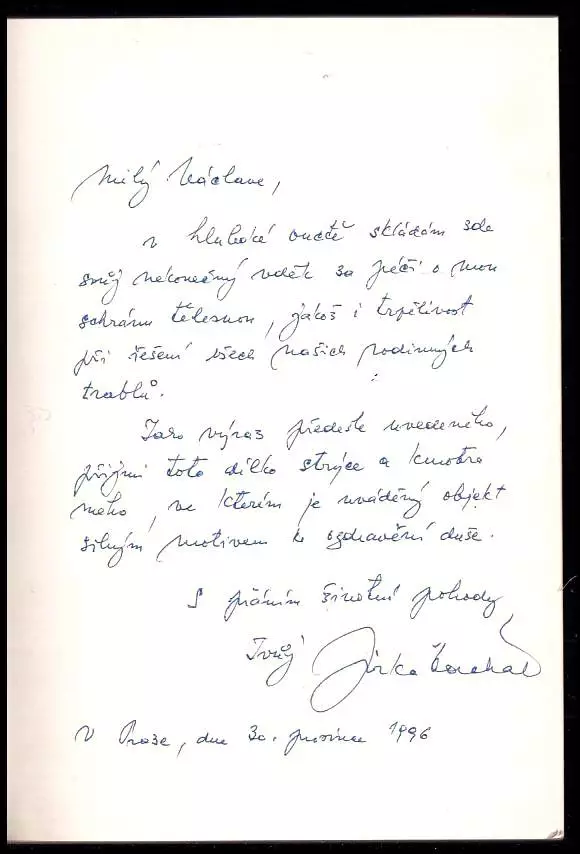 Milý Václave,
v hluboké úctě skládám zde
svůj nekonečný vděk za péči o mou
schránu tělesnou, jakož i trpělivost
při řešení všech našich rodinných
trablů.
Jako výraz předešle uvedeného,
přijmi toto dílko strýce a kmotra
mého, ve kterém je uváděný objekt
silným motivem k ozdravění duše.
S přáním životní pohody
Tvůj Jirka
V Praze, dne 30. prosince 1996